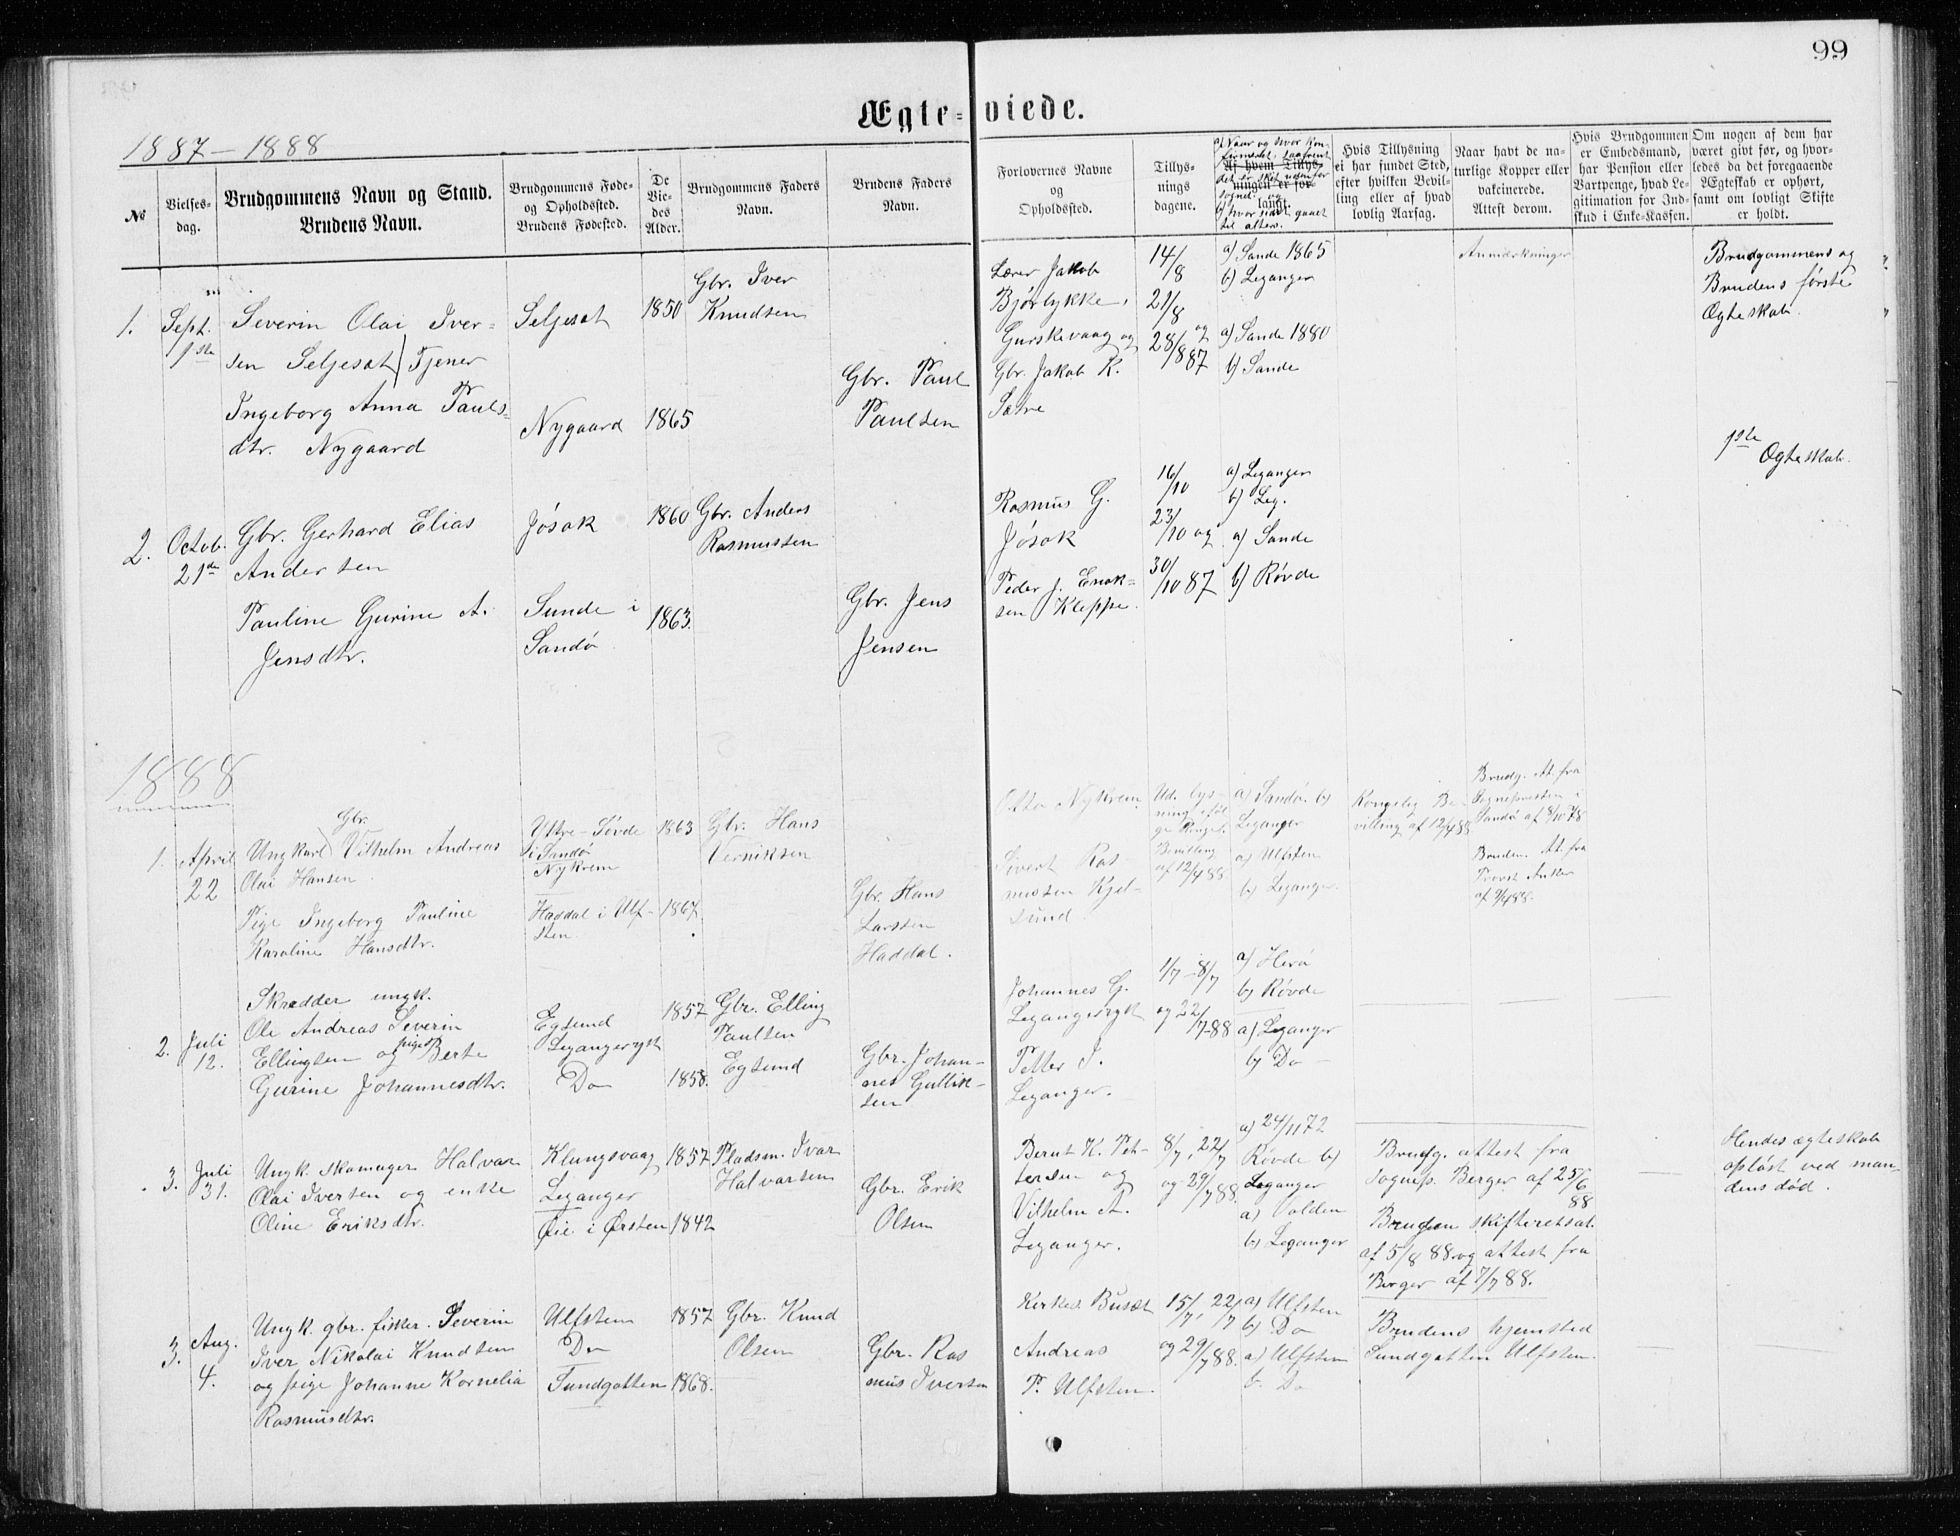 99
Ægte-viede.
1887 – 1888
№
Vielses-
dag.
Brudgommens Navn og Stand.
Brudens Navn.
Brudgommens Føde-
og Opholdssted.
Brudens Fødested.
De
Vie-
des
Alder.
Brudgommens Faders
Navn.
Brudens Faders
Navn.
Forlovernes Navne
og
Opholdssted.
Tillys-
nings
dagene.
Af hvem Tillys-
ningen er for-
langt.
b) hvor sidst gaaet
til alters.
Hvis Tillysning
ei har fundet Sted,
efter hvilken Bevil-
ling eller af hvad
lovlig Aarsag.
Naar havt de na-
turlige Kopper eller
vakcinerede.
Attest derom.
Hvis Brudgommen
er Embedsmand,
har Pension eller
Vartpenge, hvad Le-
gitimation for Ind-
skud i Enke-Kassen.
Om nogen af dem har
været givt før, og hvor-
ledes da det foregaaende
Ægteskab er ophørt,
samt om lovligt Skifte
er holdt.
1.
Sept.
1ste
Severin Olai Iver-
sen Seljesat / Tjener
Ingeborg Anna Pauls-
dtr. Nygaard
Seljesat
Nygaard
1850
1865
Gbr. Iver
Knudsen
Gbr. Paul
Paulsen
Lærer Jakob
Bjørlykke,
Gurskevaag og
Gbr. Jakob K.
Sætre
14/8
21/8
og
28/8 87
a) Sande 1865
b) Leganger
a) Sande 1880
b) Sande
Anmærkninger
Brudgommens og
Brudens første
Ægteskab.
2.
Octob.
21de
Gbr. Gerhard Elias
Andersen
Pauline Gurine A.
Jensdtr.
Jøsok
Sunde i
Sandø
1860
1863.
Gbr. Anders
Rasmussen
Gbr. Jens
Jensen
Rasmus G.
Jøsok
Peder J. Enok-
sen Kleppe.
16/10
23/10 og
30/10 87
a) Leganger
b) Leg.
a) Sande
b) Røvde
1ste
Ægteskab.
1888
1.
April
22
Gbr.
Ungkarl Vilhelm Andreas
Olai Hansen
Pige Ingeborg Pauline
Karoline Hansdtr.
Yttre-Søvde
i Sandø
Nykrem
Haddal i Ulf-
sten
1863
1867.
Gbr. Hans
Verniksen
Gbr. Hans
Larsen
Haddal.
Otto Nykrem
Sivert Ras-
mussen Kjel-
sund.
Ud. lys-
ning
Bevilling
af 12/4 88
a) Sandø. b)
Leganger
a) Ulfsten
b) Leganger.
Kongelig Be-
villing af 12/4 88
Brudg. At. fra
Sognepresten i
Sandø af 8/10 78
Bruden. At. fra
Provst
af 9/4 88.
2.
Juli
12.
Skrædder ungk.
Ole Andreas Severin
Ellingsen og pige Berte
Gurine Johannesdtr.
Egsund
Legangeryst
Do
1857
1858.
Gbr. Elling
Paulsen
Egsund
Gbr. Johan-
nes Gullik-
sen
Johannes G.
Legangeryst
Petter J.
Leganger.
1/7–8/7
og 22/7-88
a) Herø
b) Røvde
a) Leganger
b) Do –
3.
Juli
31.
Ungk. skomager Halvar
Olai Iversen og enke
Oline Eriksdtr.
Klungsvaag
Leganger
Øie i Ørsten
1857
1842
Pladsm. Ivar
Halvarsen
Gbr. Erik
Olsen
Bernt K. Pet-
tersen og
Vilhelm A.
Leganger.
8/7, 22/7
og 29/7 88.
a) 24/11 72
Røvde b)
Leganger
a) Volden
b) Leganger
Brudg. attest fra
Sognep. Berger af 25/6
88
Bruden skifteretsat.
af 5/8 88 og attest fra
Berger af 7/7 88.
Hendes ægteskab
opløst ved man-
dens død.
3.
Aug.
4.
Ungk. gbr. fisker. Severin
Iver Nikolai Knudsen
og pige Johanne Kornelia
Rasmusdtr.
Ulfsten
Do
Sundgotten
1857
1868.
Gbr. Knud
Olsen
Gbr. Ras
mus Iversen
Kirkes. Busæt
Andreas
P. Ulfsten.
15/7, 22/7
og 29/7 88.
a) Ulfsten
b) Do
a) Ulfsten
b. Do
Brudens hjemsted
Sundgotten Ulfsten.